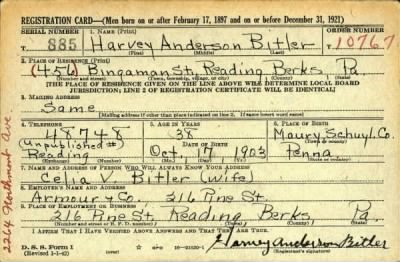 REGISTRATION CARD—(Men born on or after February 17, 1897 and on or before December 31, 1921)
SERIAL NUMBER 1. NAME (Print) ORDER NUMBER
S 85 Harvey Anderson Bitler 10767
(First) (Middle) (Last)
2. PLACE OF RESIDENCE (Print)
(456) Bingaman St. Reading Berks, Pa.
(Number and street) (Town, township, village, or city) (County) (State)
[THE PLACE OF RESIDENCE GIVEN ON THE LINE ABOVE WILL DETERMINE LOCAL BOARD
JURISDICTION; LINE 2 OF REGISTRATION CERTIFICATE WILL BE IDENTICAL]
3. MAILING ADDRESS
Same
[Mailing address if other than place indicated on line 2. If same insert word same]
4. TELEPHONE 5. AGE IN YEARS 6. PLACE OF BIRTH
48748 38 Maury Schuyl. Co.
(Unpublished #) DATE OF BIRTH (Town or county)
Reading Oct. 17, 1903 Penna
(Exchange) (Number) (Mo.) (Day) (Yr.) (State or country)
7. NAME AND ADDRESS OF PERSON WHO WILL ALWAYS KNOW YOUR ADDRESS
Celia V. Bitler (wife)
8. EMPLOYER'S NAME AND ADDRESS
Armour & Co. 216 Pine St.
9. PLACE OF EMPLOYMENT OR BUSINESS
216 Pine St. Reading Berks, Pa.
(Number and street or R. F. D. number) (Town) (County) (State)
I AFFIRM THAT I HAVE VERIFIED ABOVE ANSWERS AND THAT THEY ARE TRUE.
D. S. S. Form 1
(Revised 1-1-42) (over) 16—21630-1 Harvey Anderson Bitler
(Registrant's signature)